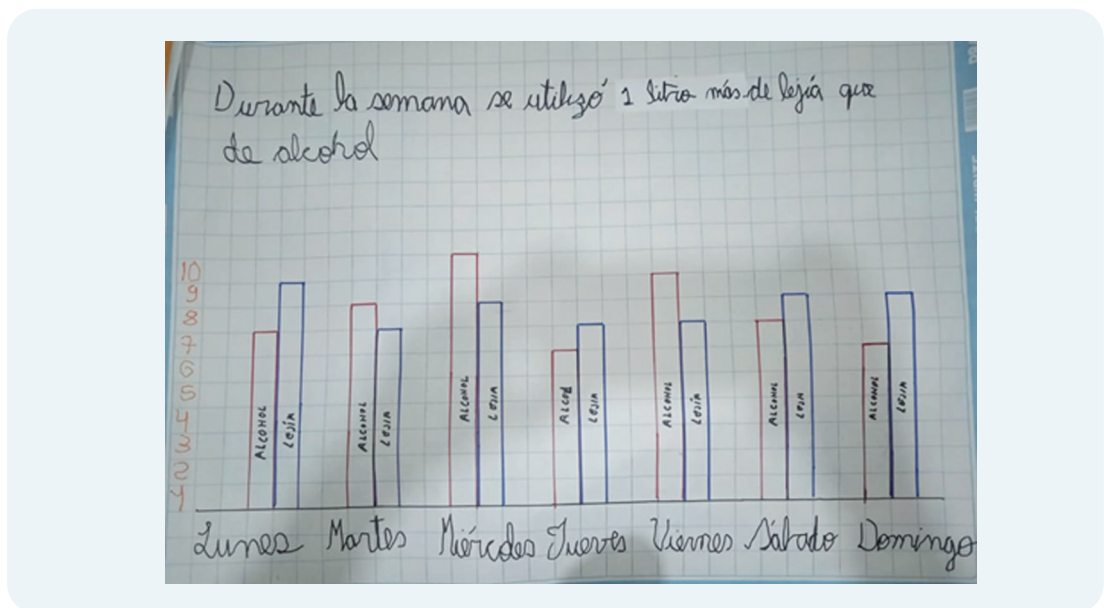 Durante la semana se utilizó 1 litro más de lejía que
de alcohol
10
9
8
7
6
5
4
3
2
1
ALCOHOL LEJÍA ALCOHOL LEJÍA ALCOHOL LEJÍA ALCOHOL LEJÍA ALCOHOL LEJÍA ALCOHOL LEJÍA
Lunes Martes Miércoles Jueves Viernes Sábado Domingo